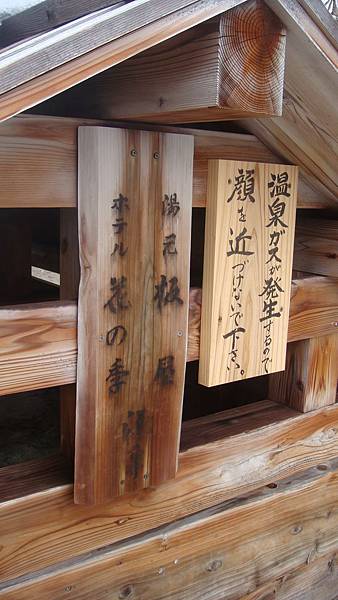 温泉ガスが発生するので
顔を近づけないで下さい。
湯元 板屋
ホテル 花の季